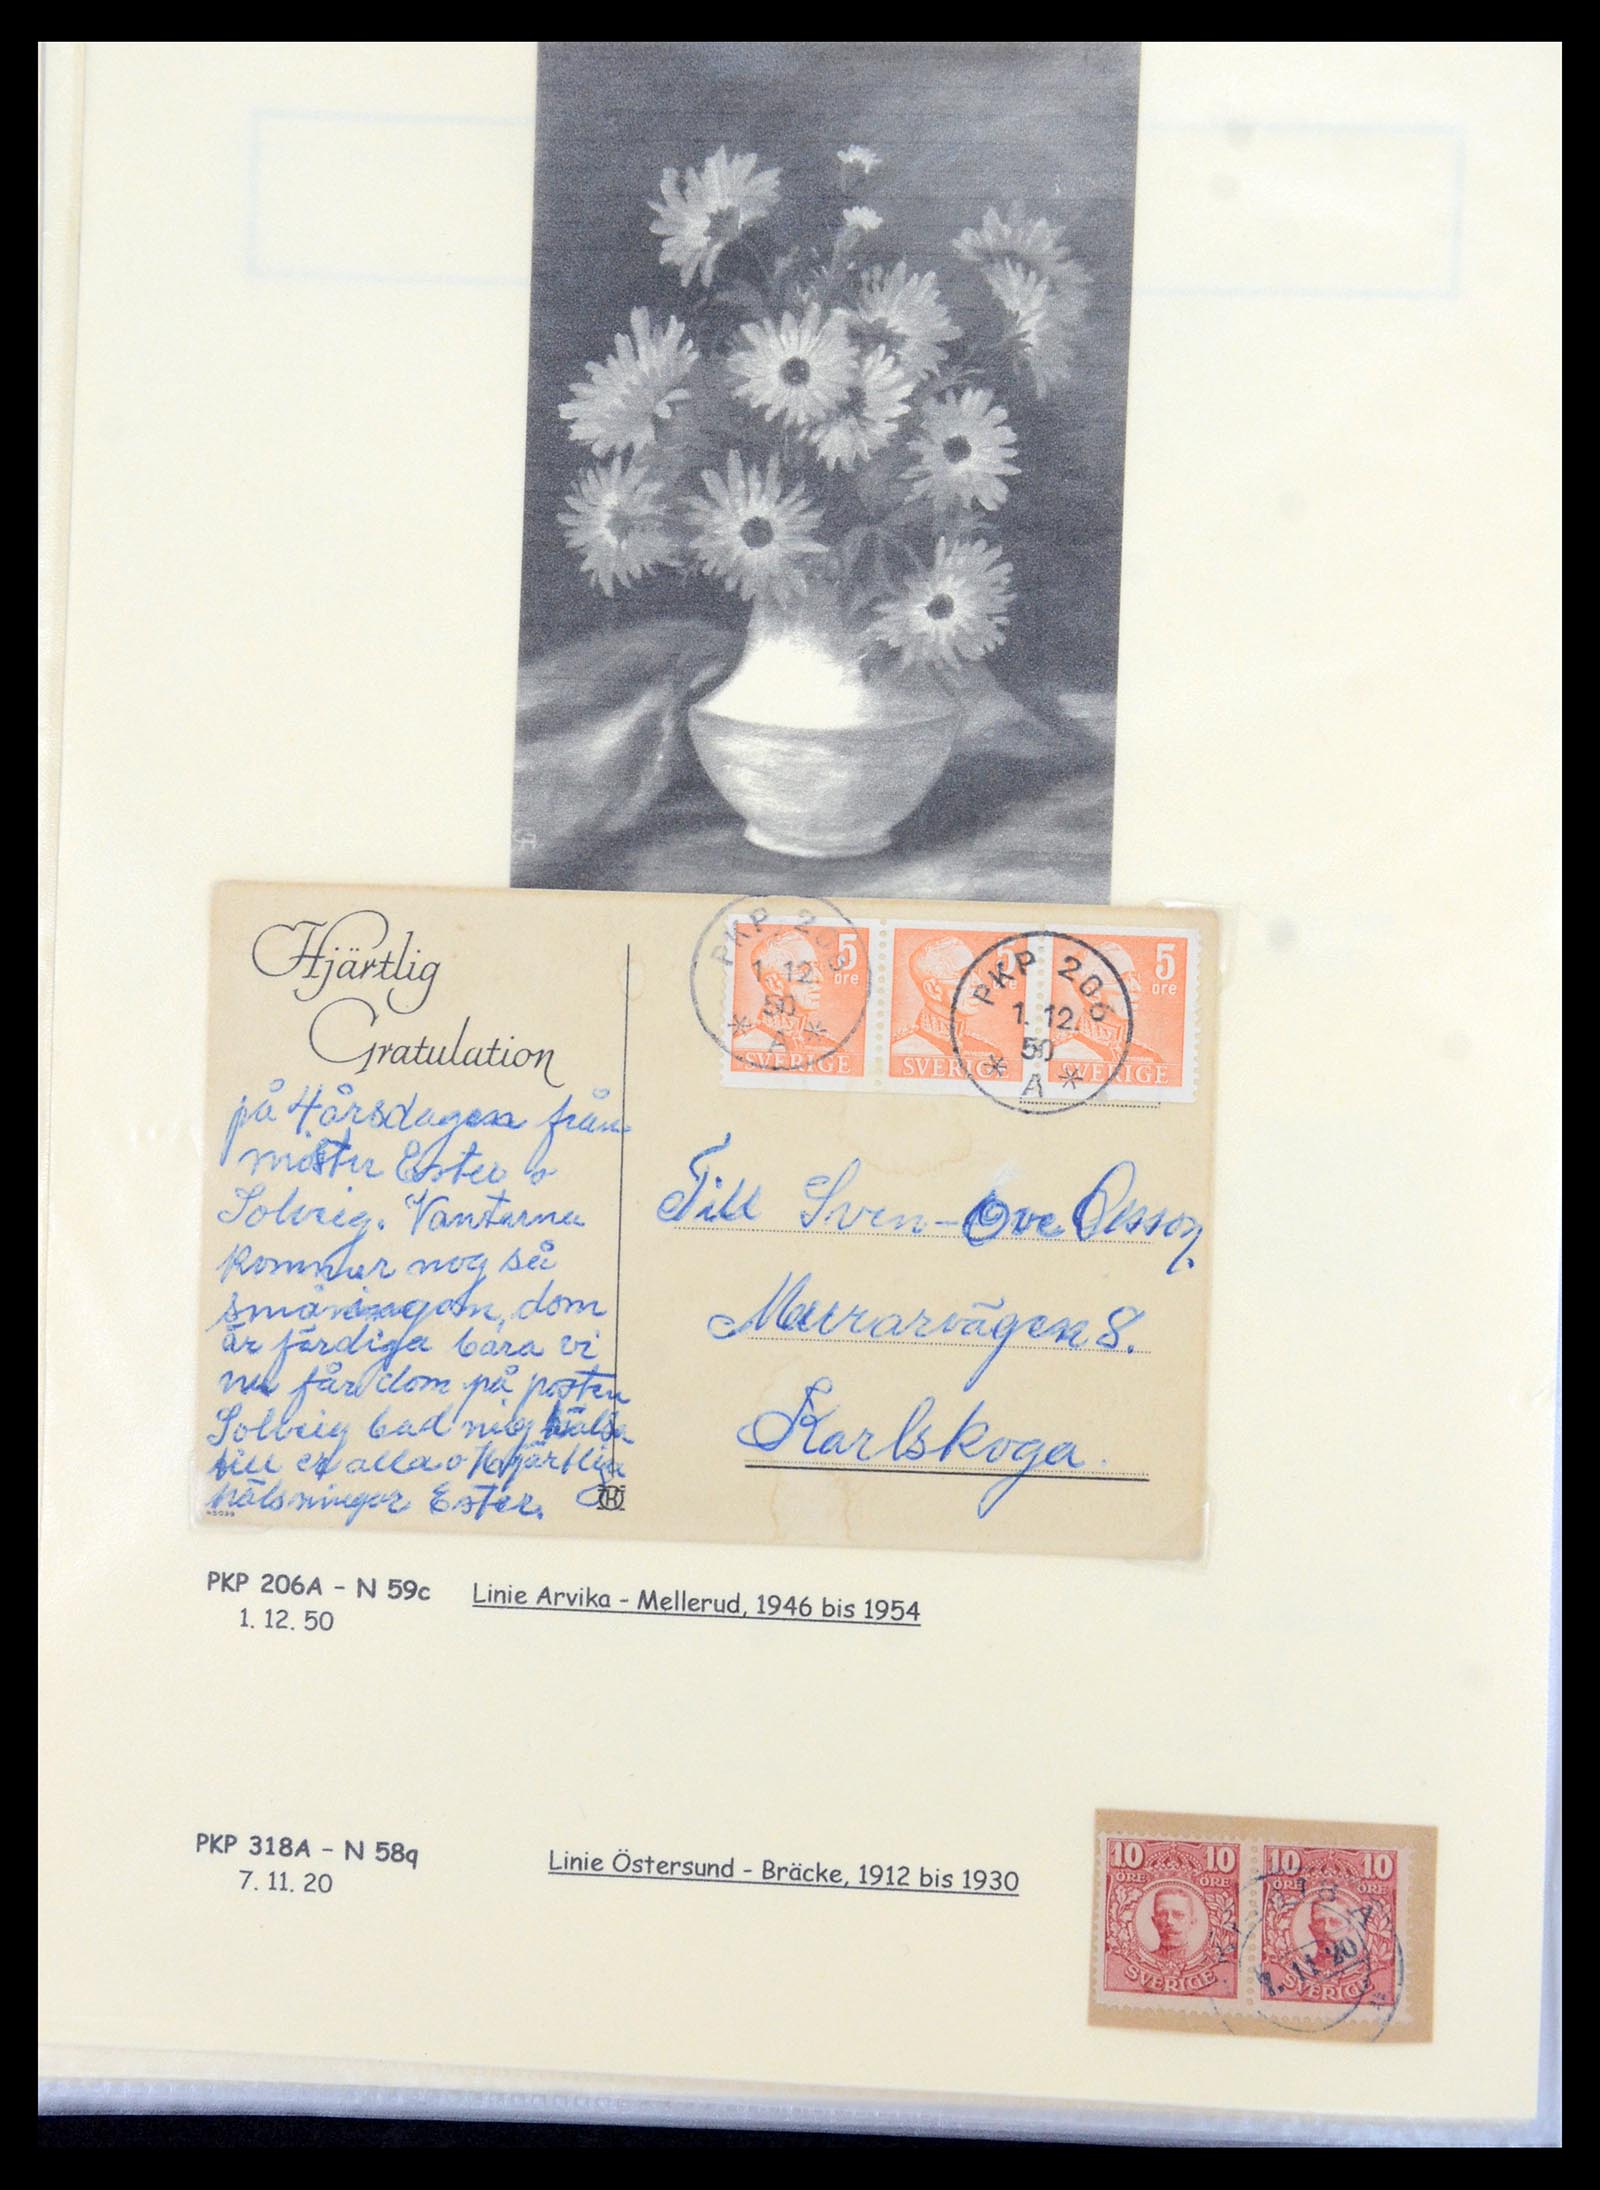 Hjärtlig
Gratulation
på 4årsdagen från
moster Ester o
Solveig. Vantarna
kommer nog så
småningom, dom
är färdiga bara vi
nu får dom på posten
Solveig bad mig hälsa
till er alla o Hjärtliga
hälsningar Ester.
H
PKP 206
1.12.
50
* A *
PKP 206
1.12.
50
* A *
5
öre
SVERIGE
5
SVERIGE
5
öre
SVERIGE
Till Sven-Ove Olsson,
Murarvägen 8.
Karlskoga.
PKP 206A - N 59c Linie Arvika - Mellerud, 1946 bis 1954
1. 12. 50
PKP 318A - N 58q Linie Östersund - Bräcke, 1912 bis 1930
7. 11. 20
10 10
ÖRE ÖRE
SVERIGE
10 10
ÖRE ÖRE
SVERIGE
7.11.20